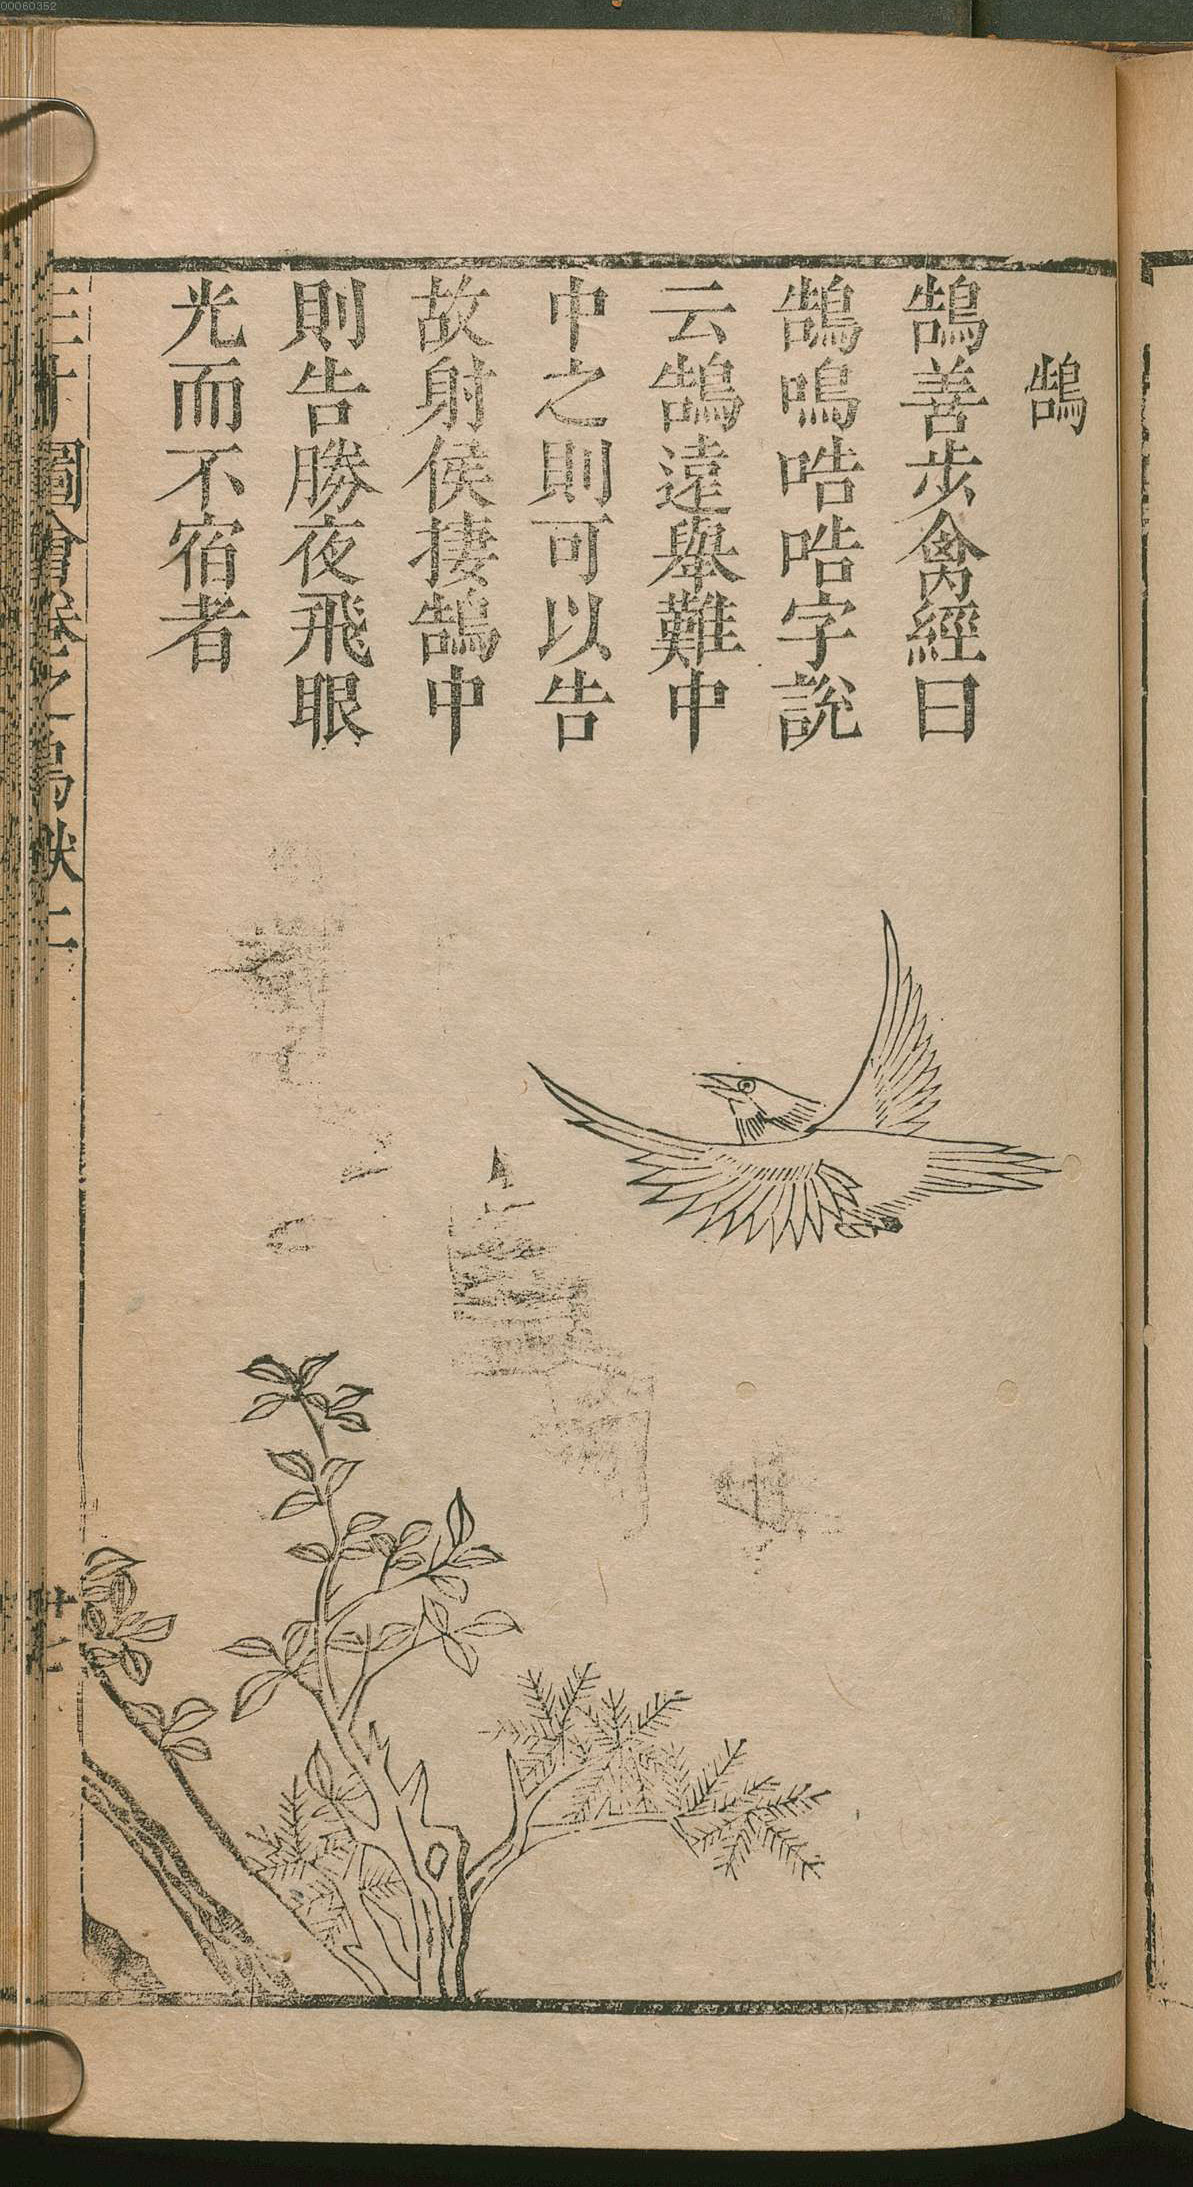 00060352
鵠
鵠善步禽經曰
鵠鳴哠哠字說
云鵠遠舉難中
中之則可以告
故射侯捿鵠中
則告勝夜飛眼
光而不宿者
三才圖會卷之鳥獸二